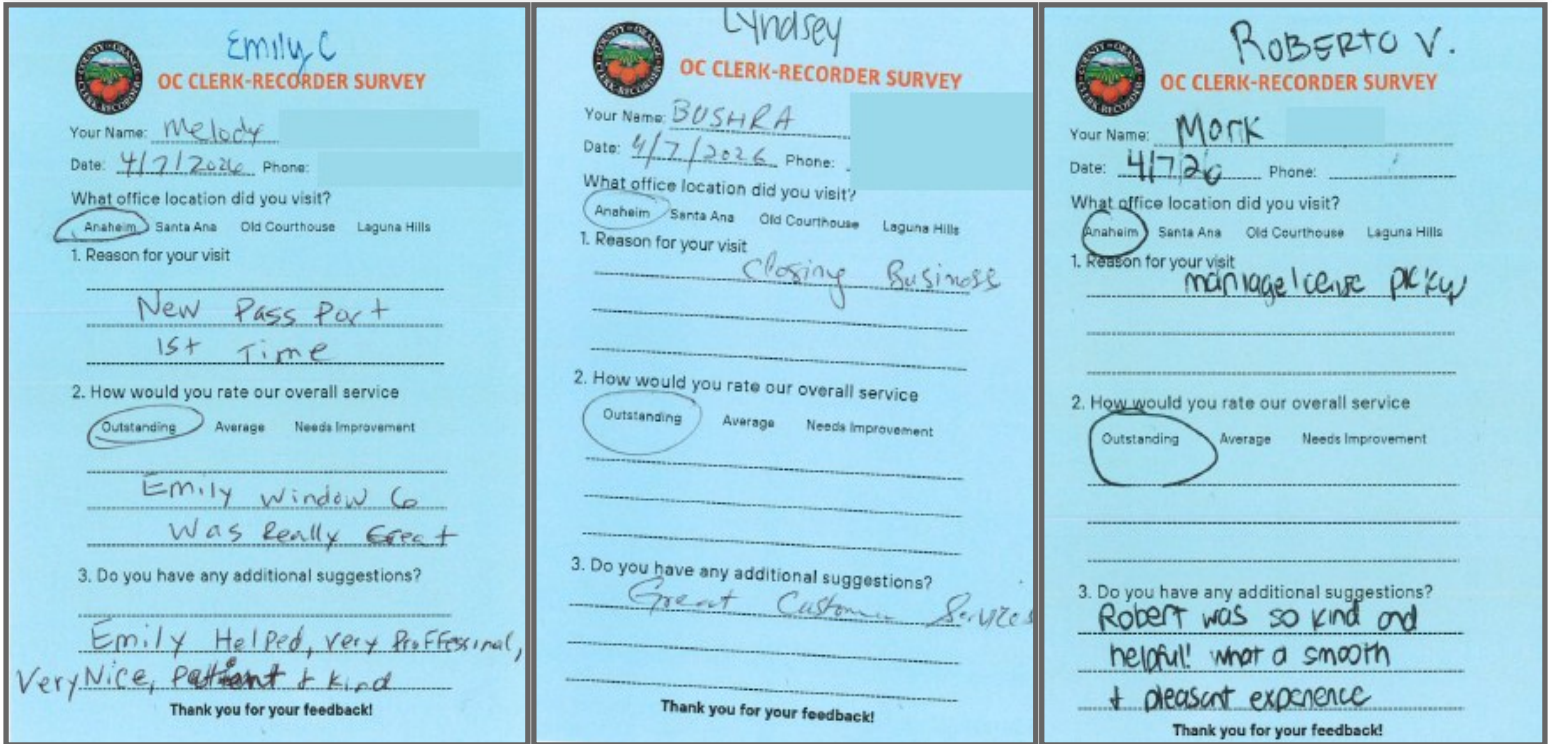 Emily C
COUNTY OF ORANGE
CLERK-RECORDER
OC CLERK-RECORDER SURVEY
Your Name: Melody
Date: 4/7/2026 Phone:
What office location did you visit?
Anaheim Santa Ana Old Courthouse Laguna Hills
1. Reason for your visit
New PassPort
1st Time
2. How would you rate our overall service
Outstanding Average Needs Improvement
Emily window 6
Was Really Great
3. Do you have any additional suggestions?
Emily Helped, very Proffessional,
Very Nice, Patient & Kind
Thank you for your feedback!
Lyndsey
COUNTY OF ORANGE
CLERK-RECORDER
OC CLERK-RECORDER SURVEY
Your Name: BUSHRA
Date: 4/7/2026 Phone:
What office location did you visit?
Anaheim Santa Ana Old Courthouse Laguna Hills
1. Reason for your visit
Closing Business
2. How would you rate our overall service
Outstanding Average Needs Improvement
3. Do you have any additional suggestions?
Great Customer Services
Thank you for your feedback!
ROBERTO V.
COUNTY OF ORANGE
CLERK-RECORDER
OC CLERK-RECORDER SURVEY
Your Name:
Date: 4/7/26 Phone:
What office location did you visit?
Anaheim Santa Ana Old Courthouse Laguna Hills
1. Reason for your visit
marriage license pickup
2. How would you rate our overall service
Outstanding Average Needs Improvement
3. Do you have any additional suggestions?
Robert was so kind and
helpful! what a smooth
& pleasant experience
Thank you for your feedback!